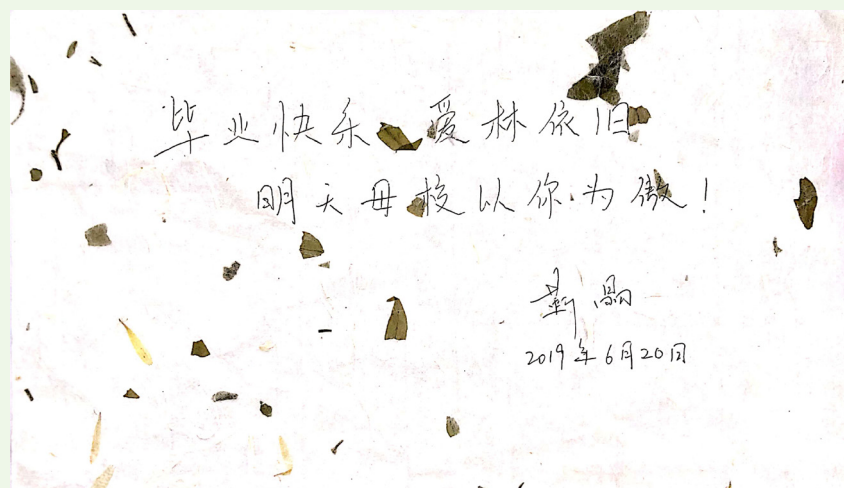 毕业快乐 爱林依旧
明天母校以你为傲！
靳晶
2019年6月20日